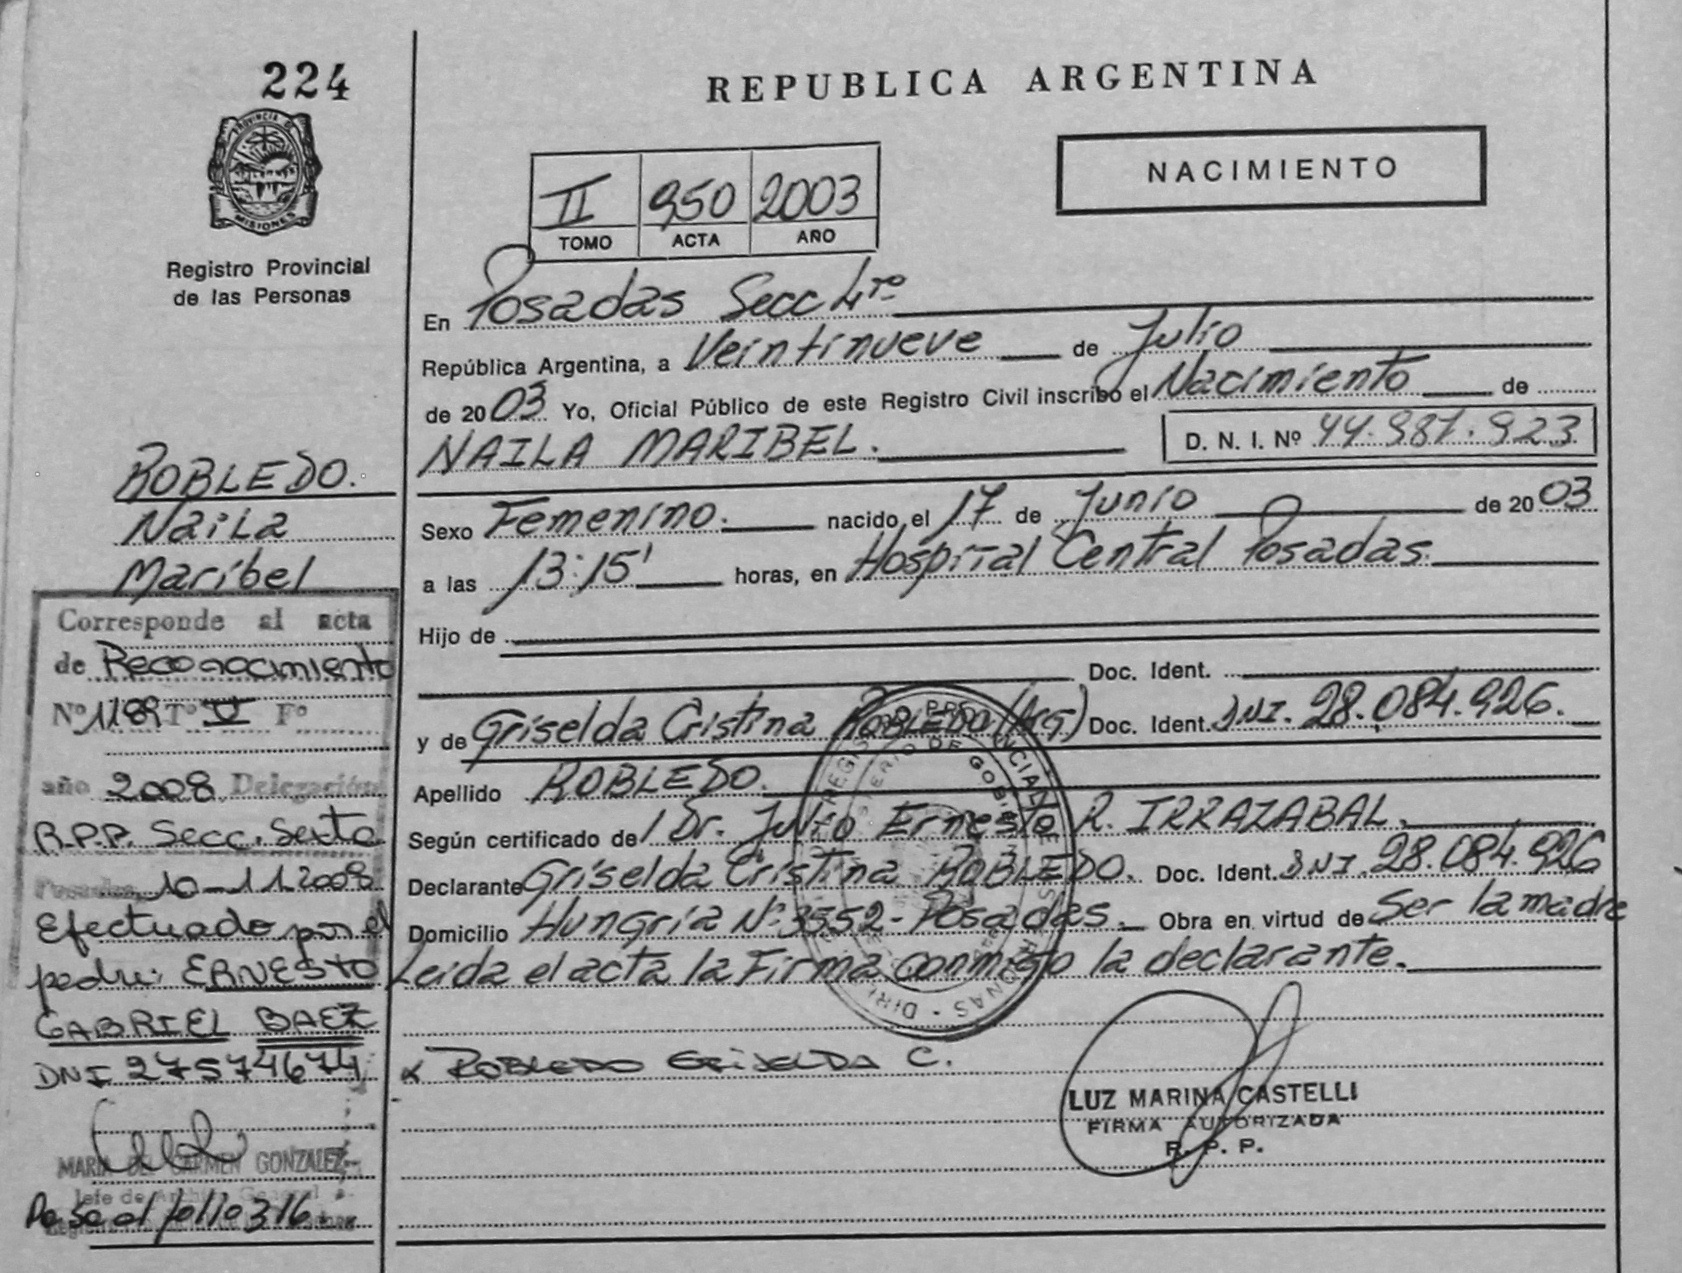 224
PROVINCIA DE
MISIONES
Registro Provincial
de las Personas
ROBLEDO.
Naila
Maribel
Corresponde al acta
de Reconocimiento
Nº 1189 Tº V Fº
año 2008 Delegación
R.P.P. Secc. Sexta
Posadas, 10-11-2008
Efectuado por el
padre: ERNESTO
GABRIEL BAEZ
DNI 27574674
MARIA DEL CARMEN GONZALEZ
Jefe de Archivo General
Pase al folio 316.
REPUBLICA ARGENTINA
NACIMIENTO
II 950 2003
TOMO ACTA AÑO
En Posadas Secc 4ta
República Argentina, a Veintinueve de Julio
de 2003 Yo, Oficial Público de este Registro Civil inscribo el Nacimiento de
NAILA MARIBEL. D. N. I. Nº 44.981.923
Sexo Femenino. nacido el 17 de Junio de 2003
a las 13:15' horas, en Hospital Central Posadas.
Hijo de
Doc. Ident.
y de Griselda Cristina ROBLEDO (Arg.) Doc. Ident. DNI. 28.084.926.
Apellido ROBLEDO.
Según certificado de Dr. Julio Ernesto R. IRRAZABAL.
Declarante Griselda Cristina ROBLEDO. Doc. Ident. DNI. 28.084.926
Domicilio Hungría Nº 3552 - Posadas. Obra en virtud de Ser la madre
Leida el acta la Firma conmigo la declarante.
x ROBLEDO GRISELDA C.
LUZ MARINA CASTELLI
FIRMA AUTORIZADA
R. P. P.